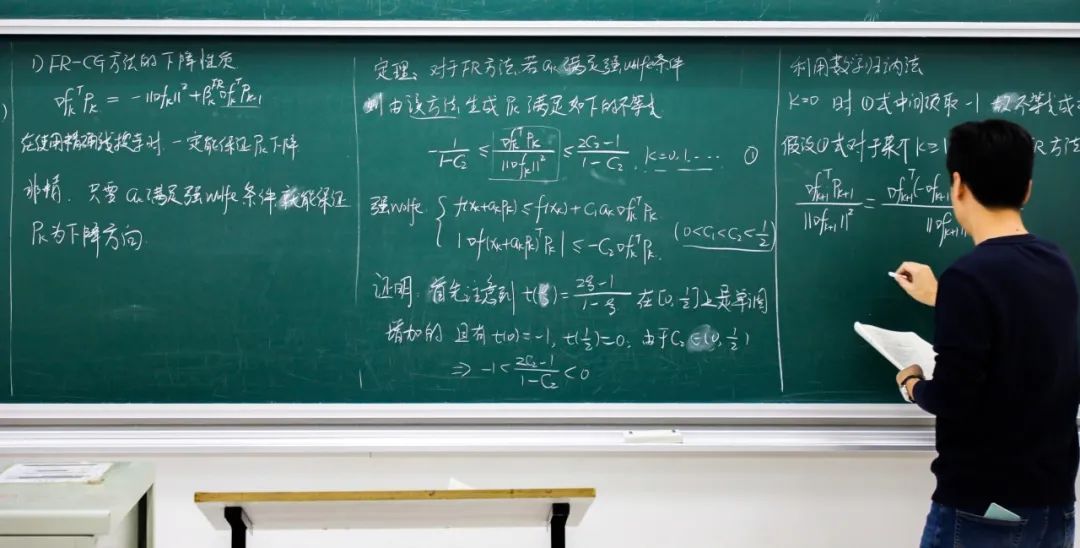 1) FR-CG方法的下降性质
∇f_k^T P_k = -||∇f_k||² + β_k^FR ∇f_k^T P_{k-1}
在使用精确线搜索时 一定能保证P_k下降
非精. 只要 α_k满足强wolfe条件就能保证
P_k为下降方向.
定理. 对于FR方法,若α_k满足强wolfe条件
则由该方法生成P_k满足如下的不等式
-1/(1-C₂) ≤ ∇f_k^T P_k/||∇f_k||² ≤ (2C₂-1)/(1-C₂). k=0.1.... ①
强wolfe. { f(x_k+α_kP_k) ≤ f(x_k)+C₁α_k∇f_k^T P_k
|∇f(x_k+α_kP_k)^T P_k| ≤ -C₂∇f_k^T P_k. (0<C₁<C₂<1/2)
证明. 首先注意到 t(ξ) = (2ξ-1)/(1-ξ) 在[0,1/2]上是单调
增加的 且有 t(0)=-1, t(1/2)=0. 由于C₂∈(0,1/2)
⇒ -1 < (2C₂-1)/(1-C₂) < 0
利用数学归纳法
k=0 时①式中间项取-1 故不等式成
假设①式对于某个k≥1 R方法
∇f_{k+1}^T P_{k+1}/||∇f_{k+1}||² = ∇f_{k+1}^T(-∇f_{k+1}/||∇f_{k+1}||